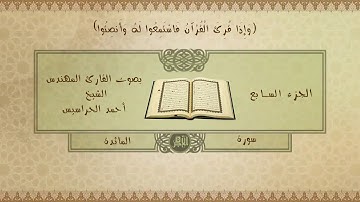 (وإذا قرئ القرآن فاستمعوا له وأنصتوا)
بصوت القارئ المهندس
الجزء السابع
الشيخ
أحمد الحراسيس
سورة
المائدة